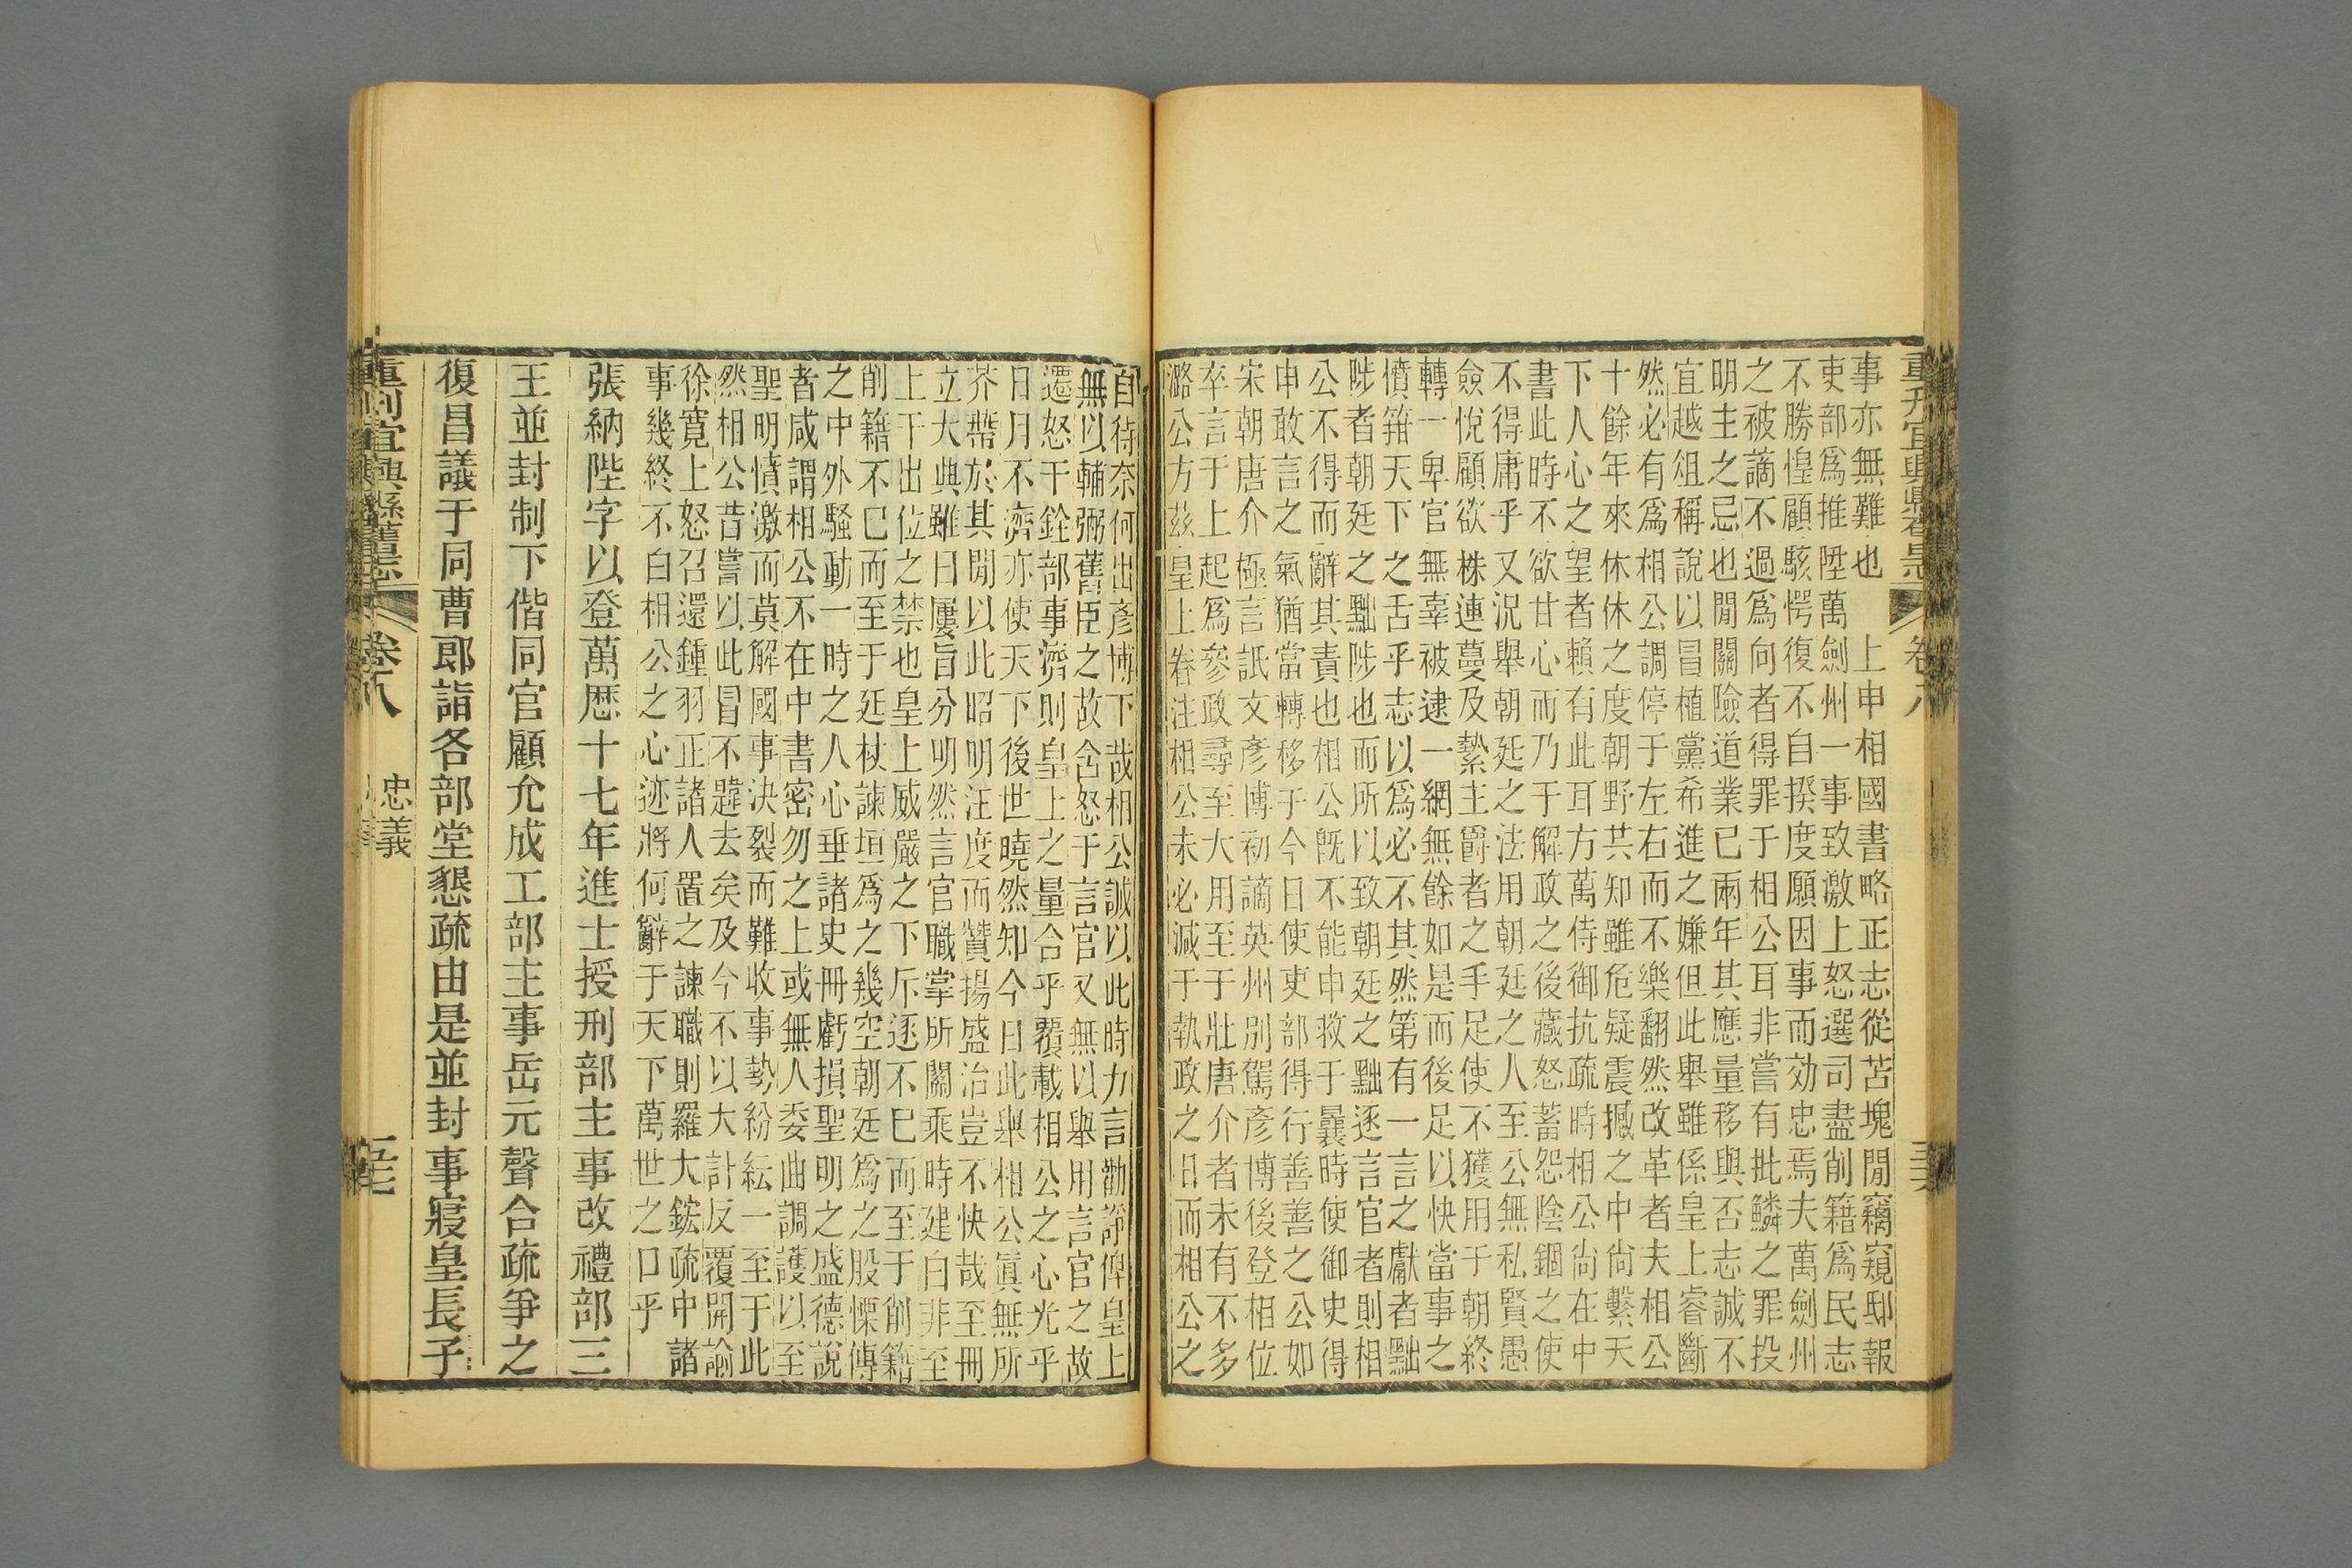 事亦無難也　上申相國書略正志從苫塊閒竊窺邸報
吏部爲推陞萬劍州一事致激上怒選司盡削籍爲民志
不勝惶顧駭愕復不自揆度願因事而効忠焉夫萬劍州
之被謫不過爲向者得罪于相公耳非嘗有批鱗之罪投
明主之忌也閒關險道業已兩年其應量移與否志誠不
宜越俎稱說以冒植黨希進之嫌但此舉雖係皇上睿斷
然必有爲相公調停于左右而不樂翻然改革者夫相公
十餘年來休休之度朝野共知雖危疑震撼之中尙繫天
下人心之望者賴有此耳方萬侍御抗疏時相公尙在中
書此時不欲甘心而乃于解政之後藏怒蓄怨陰錮之使
不得庸乎又況舉朝廷之法用朝廷之人至公無私賢愚
僉悅顧欲株連蔓及縶主爵者之手足使不獲用于朝終
轉一卑官無辜被逮一網無餘如是而後足以快當事之
憤箝天下之舌乎志以爲必不其然第有一言之獻者黜
陟者朝廷之黜陟也而所以致朝廷之黜逐言官者則相
公不得而辭其責也相公旣不能申救于曩時使御史得
申敢言之氣猶當轉移于今日使吏部得行善善之公如
宋朝唐介極言詆文彥博初謫英州別駕彥博後登相位
卒言于上起爲參政尋至大用至于壯唐介者未有不多
潞公方茲皇上眷注相公未必減于執政之日而相公之
重刋宜興縣舊志　卷八
自待奈何出彥博下哉相公誠以此時力言勸諍俾皇上
無以輔弼舊臣之故含怒于言官又無以舉用言官之故
遷怒于銓部事濟則皇上之量合乎覆載相公之心光乎
日月不濟亦使天下後世曉然知今日此舉相公眞無所
芥蔕於其閒以此昭明汪度而贊揚盛治豈不快哉至冊
立大典雖日屢旨分明然言官職掌所關乘時建白非至
上干出位之禁也皇上威嚴之下斥逐不已而至于削籍
削籍不已而至于廷杖諫垣爲之幾空朝廷爲之股慄傳
之中外騷動一時之人心垂諸史冊虧損聖明之盛德說
者咸謂相公不在中書密勿之上或無人委曲調護以至
聖明憤激而莫解國事決裂而難收事勢紛紜一至于此
然相公昔嘗以此冒不韙去矣及今不以大計反覆開諭
徐寬上怒召還鍾羽正諸人置之諫職則羅大鋐疏中諸
事幾終不白相公之心迹將何辭于天下萬世之口乎
張納陛字以登萬歷十七年進士授刑部主事改禮部三
王並封制下偕同官顧允成工部主事岳元聲合疏爭之
復昌議于同曹郎詣各部堂懇疏由是並封事寢皇長子
重刋宜興縣舊志　卷八　忠義